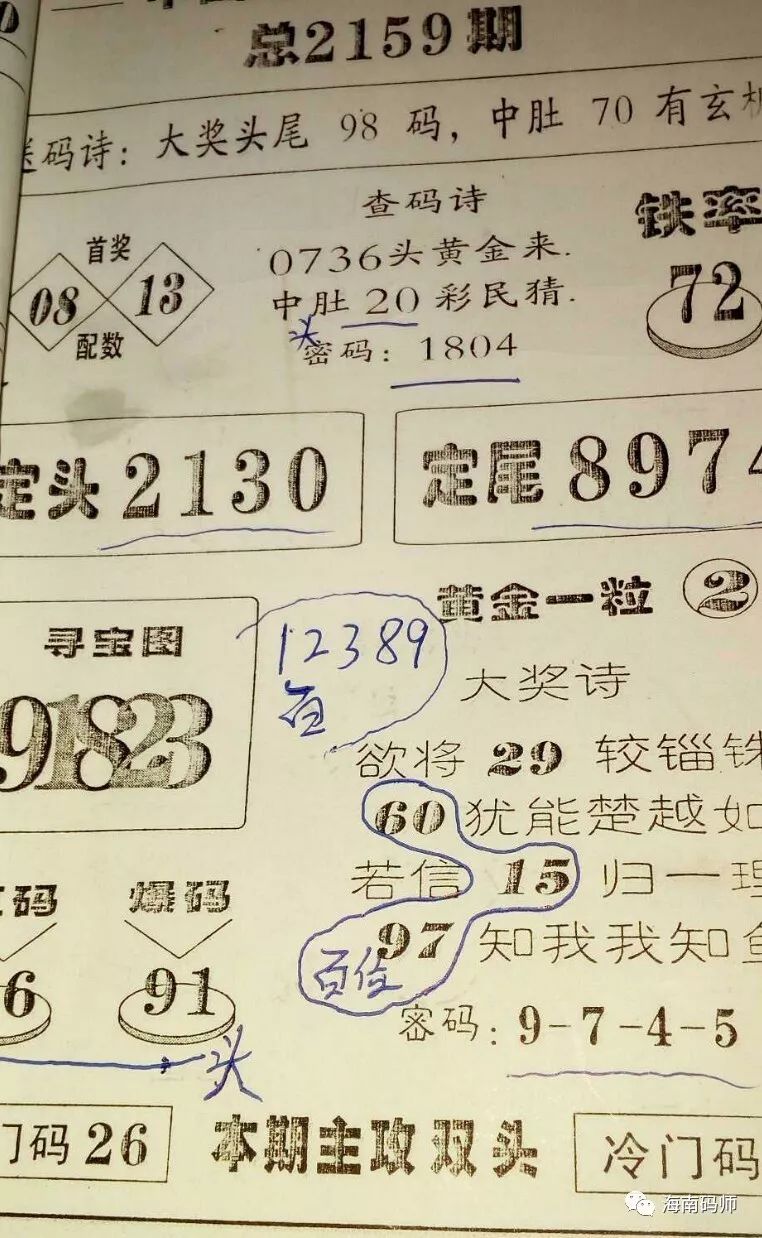 总2159期
送码诗：大奖头尾 98 码，中肚 70 有玄机
查码诗
铁率
首奖
0736头黄金来.
72
08 13
中肚 20 彩民猜.
头
配数
密码：1804
定头 2130
定尾 8974
黄金一粒 2
寻宝图
12389
百
大奖诗
91823
欲将 29 较锱铢
60 犹能楚越如
若信 15 归一理
码 爆码
97 知我我知鱼
百位
6 91
密码：9-7-4-5
头
门码 26
本期主攻双头
冷门码
海南码师